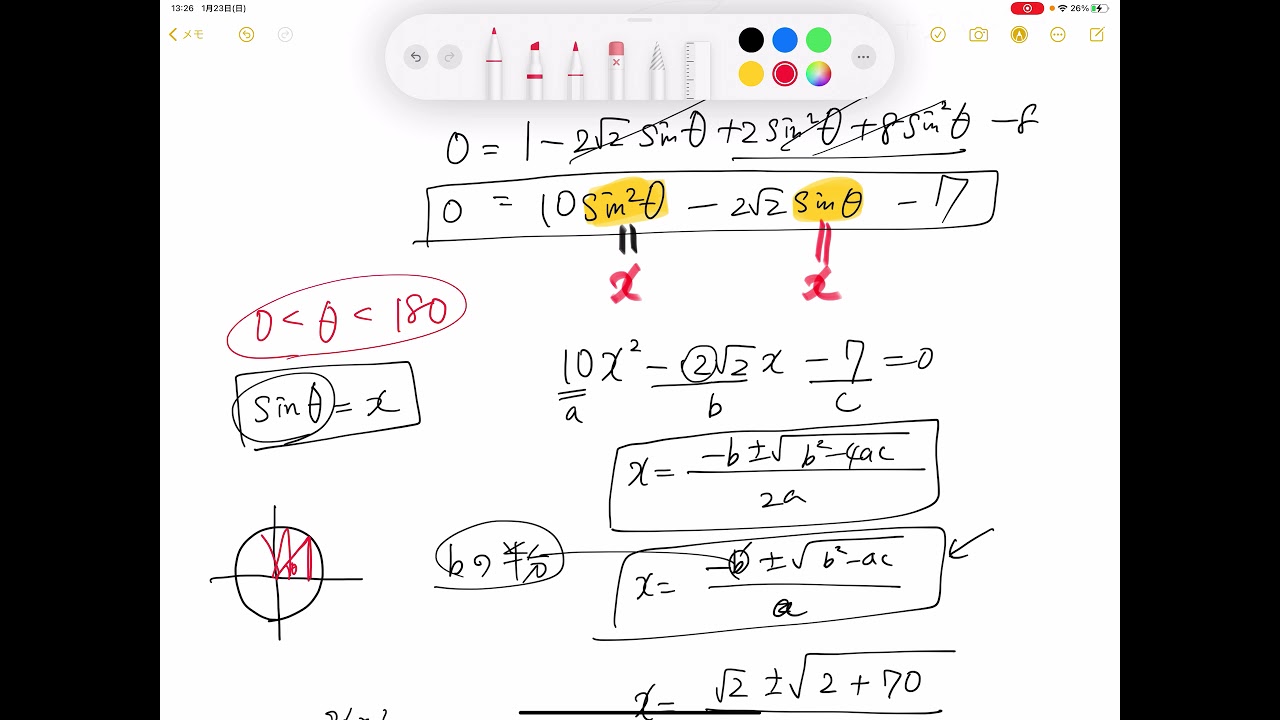 13:26 1月23日(日)
26%
メモ
0 = 1 - 2√2 sinθ + 2 sin²θ + 8 sin²θ - 8
0 = 10 sin²θ - 2√2 sinθ - 7
x x
0 < θ < 180
10x² - 2√2 x - 7 = 0
a b c
sinθ = x
x = (-b ± √(b²-4ac)) / 2a
bの半分
x = (-b ± √(b²-ac)) / a
x = √2 ± √(2 + 70)